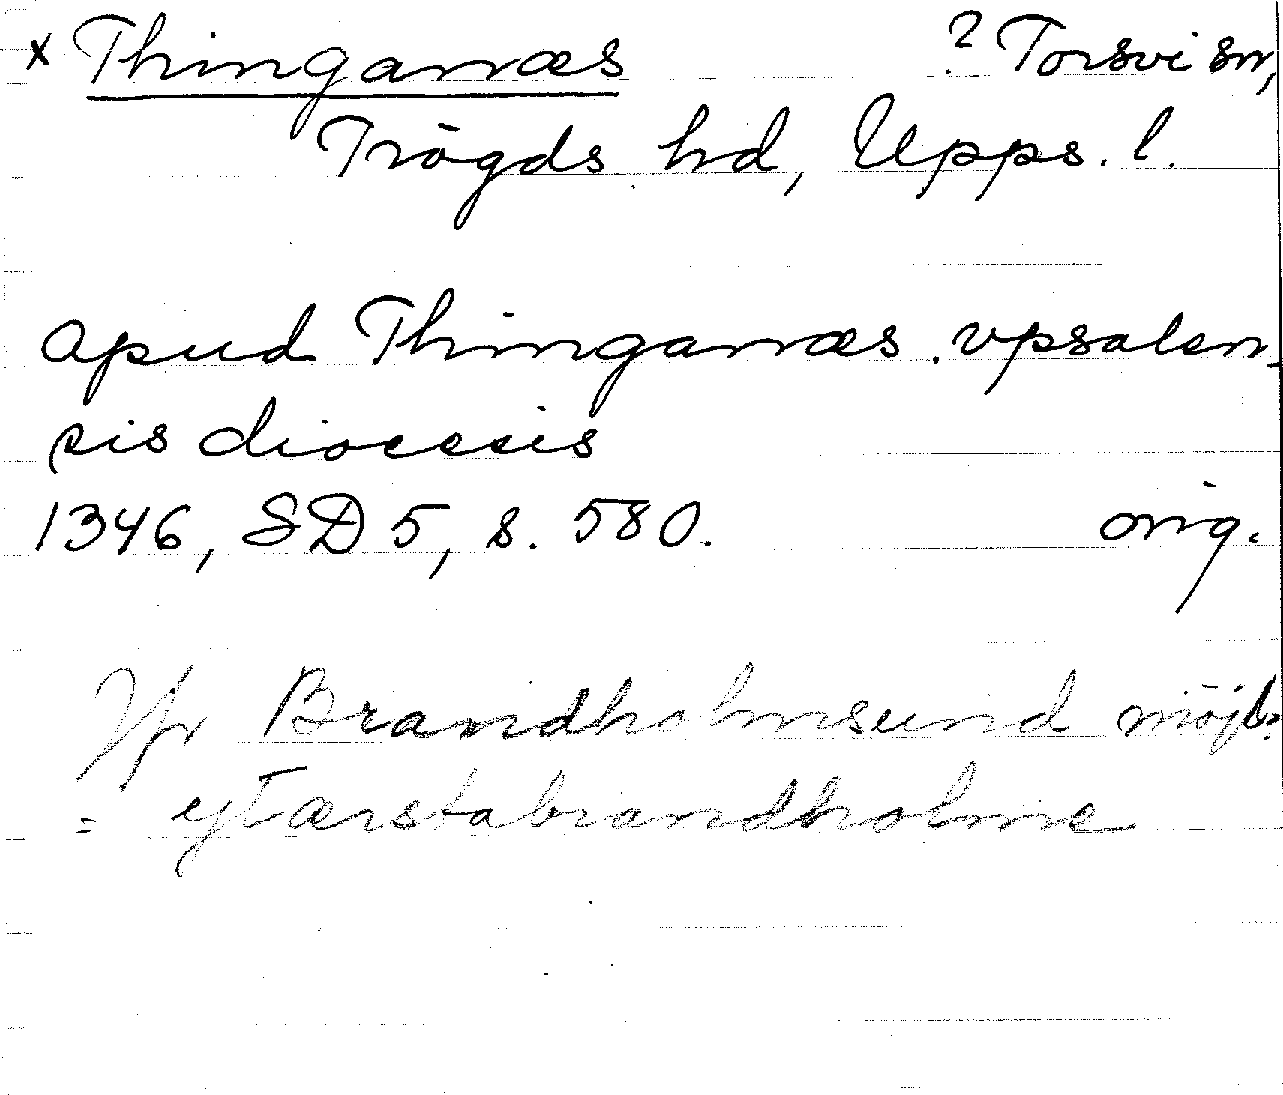 x Thinganæs ? Torsvi sn,
Trögds hd, Upps. l.
apud Thinganæs vpsalen-
sis diocesis
1346, SD 5, s. 580. orig.
Jfr Brandholmsund möjl.
= ytærstabrandholme